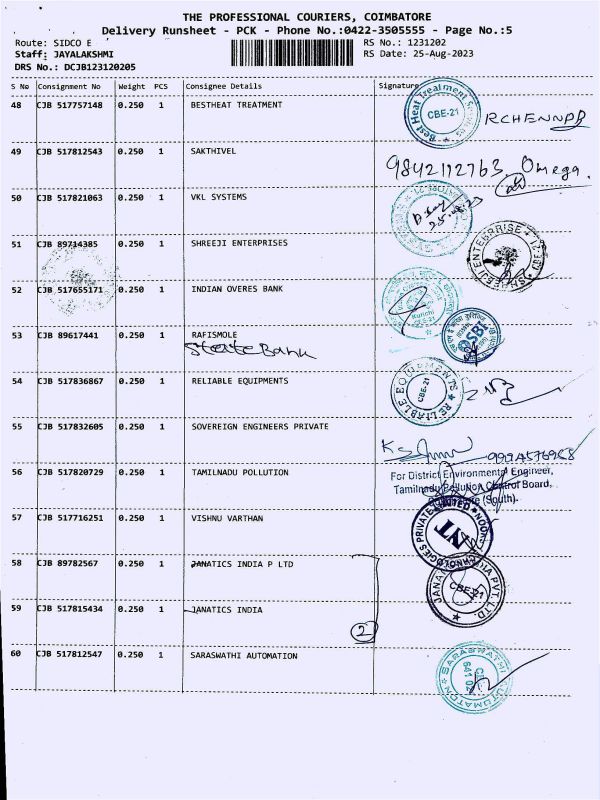 THE PROFESSIONAL COURIERS, COIMBATORE
Delivery Runsheet - PCK - Phone No.:0422-3505555 - Page No.:5
Route: SIDCO E RS No.: 1231202
Staff: JAYALAKSHMI RS Date: 25-Aug-2023
DRS No.: DCJB123120205
S No Consignment No Weight PCS Consignee Details Signature
48 CJB 517757148 0.250 1 BESTHEAT TREATMENT
Best Heat Treatment CBE-21
RCHENNPP
49 CJB 517812543 0.250 1 SAKTHIVEL
9842112763, Omega.
50 CJB 517821063 0.250 1 VKL SYSTEMS
25.08.23
51 CJB 89714385 0.250 1 SHREEJI ENTERPRISES
SHREEJI ENTERPRISE
52 CJB 517655171 0.250 1 INDIAN OVERES BANK
Kurichi
53 CJB 89617441 0.250 1 RAFISMOLE
State Bank
SBI
54 CJB 517836867 0.250 1 RELIABLE EQUIPMENTS
RELIABLE EQUIPMENTS CBE-21
55 CJB 517832605 0.250 1 SOVEREIGN ENGINEERS PRIVATE
56 CJB 517820729 0.250 1 TAMILNADU POLLUTION
For District Environmental Engineer,
Tamilnadu Pollution Control Board,
(South).
57 CJB 517716251 0.250 1 VISHNU VARTHAN
PRIVATE LIMITED
NT
58 CJB 89782567 0.250 1 JANATICS INDIA P LTD
PVT. LTD.
CBE-21
59 CJB 517815434 0.250 1 JANATICS INDIA
2
60 CJB 517812547 0.250 1 SARASWATHI AUTOMATION
SARASWATHI AUTOMATION
641 02